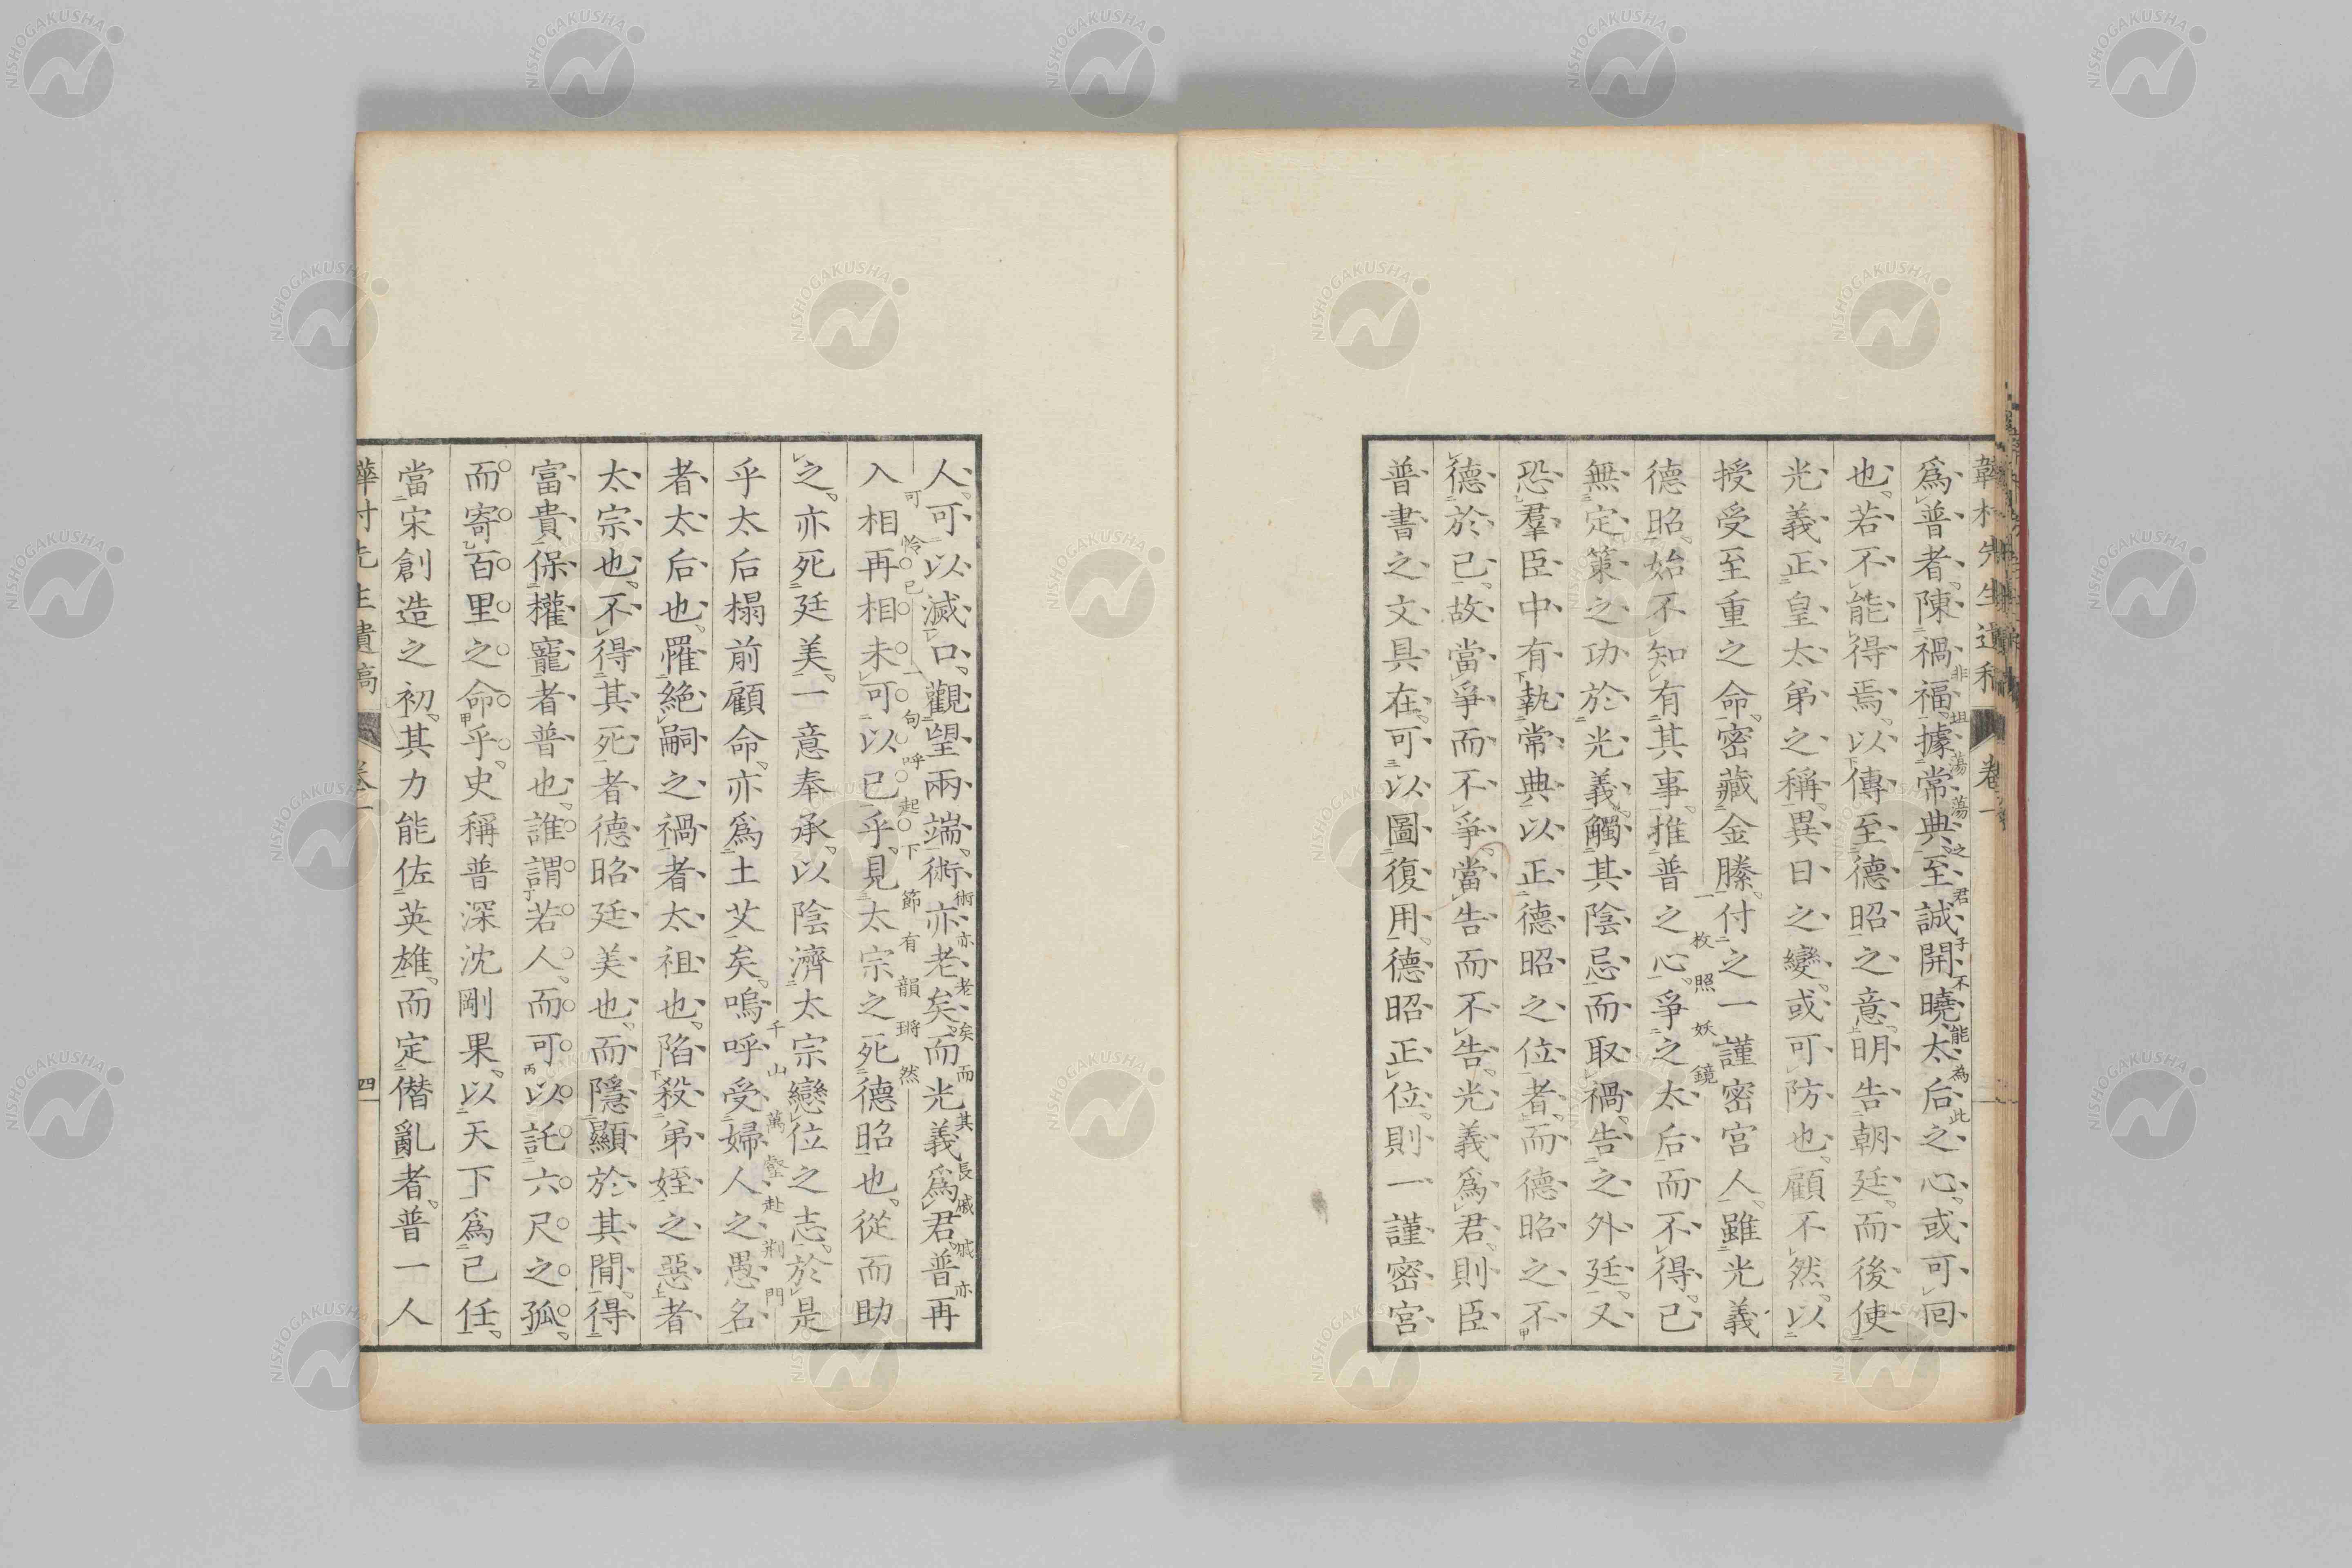 韡村先生遺稿 卷一
爲普者陳禍福據常典至誠開曉太后之心或可回
非坦蕩蕩之君子不能為此
也若不能得焉以傳至德昭之意明告朝廷而後使
光義正皇太弟之稱異日之變或可防也顧不然以
授受至重之命密藏金縢付之一謹密宮人雖光義
一枚照妖鏡
德昭始不知有其事推普之心爭之太后而不得已
無定策之功於光義觸其陰忌而取禍告之外廷又
恐羣臣中有執常典以正德昭之位者而德昭之不
德於己故當爭而不爭當告而不告光義爲君則臣
普書之文具在可以圖復用德昭正位則一謹密宮
人可以滅口觀望兩端術亦老矣而光義爲君普再
術亦老矣而其長戚戚亦可怜已
入相再相未可以已乎見太宗之死德昭也從而助
一句呼起下節有韻鏘然
之亦死廷美一意奉承以陰濟太宗戀位之志於是
乎太后榻前顧命亦爲土艾矣嗚呼受婦人之愚名
千山萬壑赴荆門
者太后也罹絶嗣之禍者太祖也陷殺弟姪之惡者
太宗也不得其死者德昭廷美也而隱顯於其間得
富貴保權寵者普也誰謂若人而可以託六尺之孤
而寄百里之命乎史稱普深沈剛果以天下爲己任
當宋創造之初其力能佐英雄而定僭亂者普一人
韡村先生遺稿 卷一 四